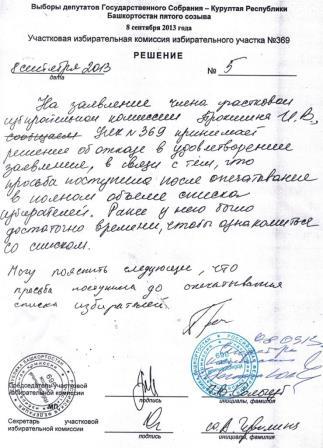 Выборы депутатов Государственного Собрания – Курултая Республики
Башкортостан пятого созыва
8 сентября 2013 года
Участковая избирательная комиссия избирательного участка №369
РЕШЕНИЕ
8 сентября 2013 № 5
дата
На заявление члена участковой
избирательной комиссии И.В.,
сообщаем УИК №369 принимает
решение об отказе в удовлетворение
заявление, в связи с тем, что
просьба поступила после опечатывание
в полном объеме списка
избирателей. Ранее у него было
достаточно времени, чтобы ознакомиться
со списком.
Могу пояснить следующее, что
просьба поступила до опечатывания
списка избирателей.
Председатель участковой
избирательной комиссии
МП
подпись инициалы, фамилия
Секретарь участковой
избирательной комиссии
подпись инициалы, фамилия